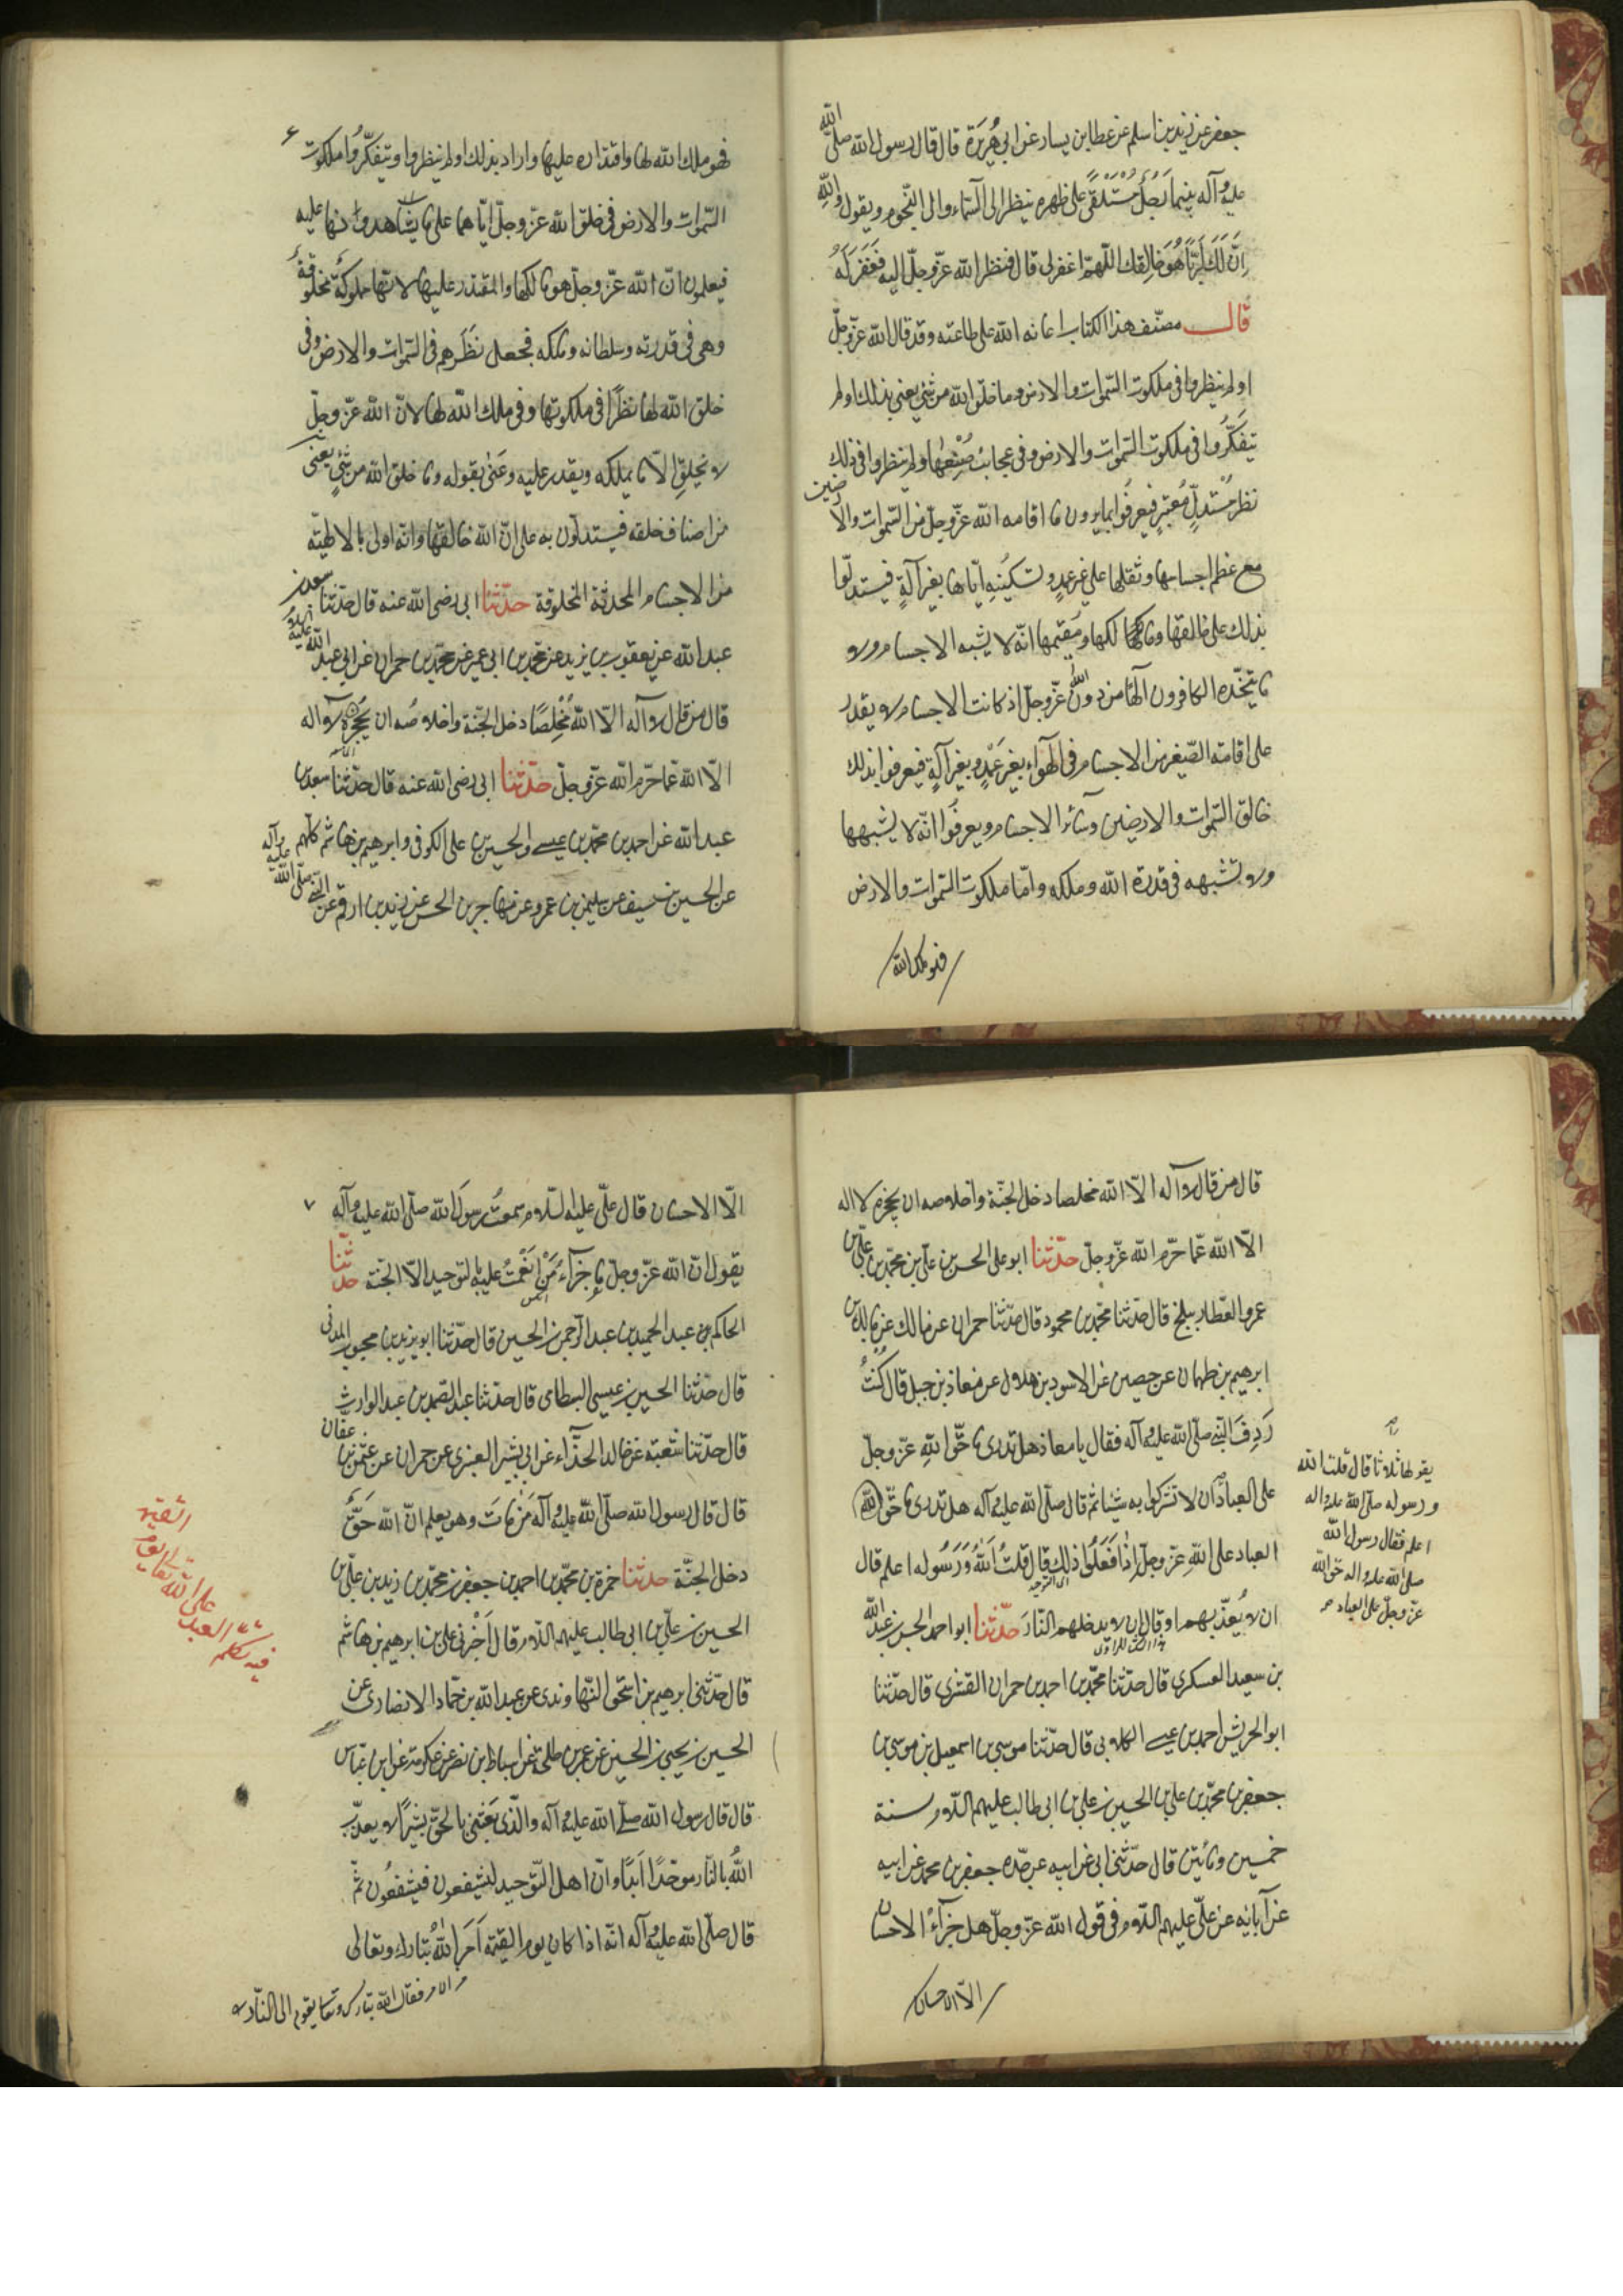 جعفر عن زيد بن اسلم عن عطا بن يسار عن ابى هُرَيرَة قال قال رسول الله صلّى الله
عليه وآله بينما رَجُلٌ مُسْتَلْقًى على ظهره ينظر الى السّماء والى النّجوم ويقول والله
اِنَّ لَكَ لَرَبًّا هُوَ خالِقك اللّهمّ اغفر لى قال فنظر الله عزّ وجلّ اليه فَغَفَرَ لَهُ
قال مصنّف هذا الكتاب اعانه الله على طاعته وقد قال الله عزّ وجلّ
اولم ينظروا فى ملكوت السّموات والارض وما خلق الله من شئ يعنى بذلك اولم
يتفَكّرُوا فى ملكوت السّموات والارض وفى عجائب صُنْعِها ولم ينظروا فى ذلك
نظر مُسْتدلٍّ مُعْتبِرٍ فيعرفُوا بما يرون ما اقامه الله عزّ وجلّ من السّموات والارضين
مع عظم اجسامها وثقلها على غير عمدٍ وتسكينِهِ ايّاها بغير آلةٍ فيستدلّوا
بذلك على خالقها ومالكها ومقيمها انّه لا يشبه الاجسام ولا
ما يتخّذه الكافرون آلهًا من دون الله عزّ وجلّ اذ كانت الاجسام لا يقدر
على اقامته الصّغير من الاجسام فى الهواء بغير عَمْدٍ وبغير آلةٍ فيعرفوا بذلك
خالق السّموات والارضين وسائر الاجسام ويعرفُوا انّه لا يشبهها
ولا تشبهه فى قدرة الله وملكه وامّا ملكوت السّموات والارض
فهو ملك الله
٦
فهو ملك الله لها واقتداره عليها واراد بذلك اولم ينظروا ويتفكّرُوا ملكوت
السّموات والارض فى خلق الله عزّ وجلّ ايّاهما على ما يشاهدونها عليه
فيعلمون انّ الله عزّ وجلّ هو مالكها والمقتدر عليها لانّها مملوكةٌ مخلوقةٌ
وهى فى قدرته وسلطانه وملكه فجعل نَظَرهم فى السّموات والارض وفى
خلق الله لها نظرًا فى ملكوتها وفى ملك الله لها لانّ الله عزّ وجلّ
لا يخلق الّا ما يملكه ويقدر عليه وعَنىٰ بقوله وما خلق الله من شئٍ يعنى
من اصناف خلقه فيستدلّون به على انّ الله خالقها وانّه اولى بالالهيّه
من الاجسام المحدثة المخلوقة حدّثنا ابى رضى الله عنه قال حدّثنا سعد بن
عبد الله عن يعقوب بن يزيد عن محمّد بن ابى عمير عن محمّد بن حمران عن ابى عبد الله عليه السلام
قال من قال لا آله الّا الله مُخْلِصًا دخل الجنّة واخلاصُه ان يَحْجُزَه لا آله
الّا الله عمّا حرّم الله عزّ وجلّ حدّثنا ابى رضى الله عنه قال حدّثنا سعد بن
عبد الله عن احمد بن محمّد بن عيسى والحسن بن على الكوفى وابرهيم بن هاشم كلّهم
عن الحسين بن سيف عن سليمن بن عمرو عن مهاجر بن الحسن عن زيد بن ارقم عن النبى صلّى الله عليه وآله
قال من قال لا آله الّا الله مخلصا دخل الجنّة واخلاصه ان يحجزه لا اله
الّا الله عمّا حرّم الله عزّ وجلّ حدّثنا ابو على الحسن بن علىّ بن محمّد بن علىّ بن
عمرو العطّار ببلخ قال حدّثنا محمّد بن محمود قال حدّثنا حمران عن مالك عن
ابرهيم بن طهمان عن حصين عن الاسود بن هلال عن معاذ بن جبل قال كُنْتُ
رَدِفَ النّبى صلّى الله عليه وآله فقال يا معاذ هل تدرى ما حَقُّ اللهِ عزّ وجلّ
على العباد ان لا تشركوا به شيئا ثم قال صلّى الله عليه وآله هل تدرى ما حَقُّ
العباد على اللهِ عزّ وجلّ اِذا فَعَلُوا ذلك قال قلتُ اَللهُ وَرَسُوله اعلم قال
ان لا يُعذّبهم او قال ان لا يدخلهم النّار حدّثنا ابو احمد الحسن بن عبد الله
بن سعيد العسكرى قال حدّثنا محمّد بن احمد بن حمران القشيرى قال حدّثنا
ابو الحريش احمد بن عيسى الكلابى قال حدّثنا موسى بن اسمعيل بن موسى بن
جعفر بن محمّد بن على بن الحسين بن على بن ابى طالب عليهم السّلام سنة
خمسين ومائتين قال حدّثنى ابى عن ابيه عن جدّه جعفر بن محمد عن ابيه
عن آبائه عن علىّ عليهم السّلام فى قول الله عزّ وجلّ هل جزآءُ الاحسان
الّا الاحسان
يقولها ثلاثا قال قلت الله
ورسوله صلّى الله عليه واله
اعلم فقال رسول الله
صلى الله عليه واله حقّ الله
عزّ وجلّ على العباد
٧
الّا الاحسان قال علىّ عليه السّلام سمعتُ رسولَ الله صلّى الله عليه وآله
يقول انّ الله عزّ وجلّ قال ما جزآءُ مَنْ اَنْعَمْتُ عليه بالتوحيد الّا الجنّة حدّثنا
الحاكم بن عبد الحميد بن عبد الرّحمن بن الحسين قال حدّثنا ابو يزيد بن محبوب المدنى
قال حدّثنا الحسين بن عيسى البسطامى قال حدّثنا عبد الصّمد بن عبد الوارث
قال حدّثنا شعبة عن خالد الحذّاء عن ابى بشير العنبرى عن حمران عن عثمن بن عفّان
قال قال رسول الله صلّى الله عليه وآله مَنْ ماتَ وهو يعلم انّ الله حَقٌّ
دخل الجنّة حدّثنا حمزة بن محمّد بن احمد بن جعفر بن محمّد بن زيد بن علىّ بن
الحسين بن علىّ بن ابى طالب عليهم السّلام قال اَخْبَرنى على بن ابرهيم بن هاشم
قال حدّثنى ابرهيم بن اسحق النّهاوندى عن عبد الله بن حمّاد الانصارى عن
الحسين بن يحيى بن الحسين عن عمرو بن طلحة عن اسباط بن نصر عن عكرمة عن ابن عبّاس
قال قال رسول الله صلّى الله عليه وآله والّذى بَعَثَنى بالحقّ بشيرًا لا يعذّب
اللهُ بالنّار موحّدًا اَبَدًا وانّ اهل التّوحيد ليشفعون فيشفعُون ثمّ
قال صلّى الله عليه وآله انّه اذا كان يوم القيٰمة اَمَرَ اللهُ تبارك وتعالى
بقوم الى النّار